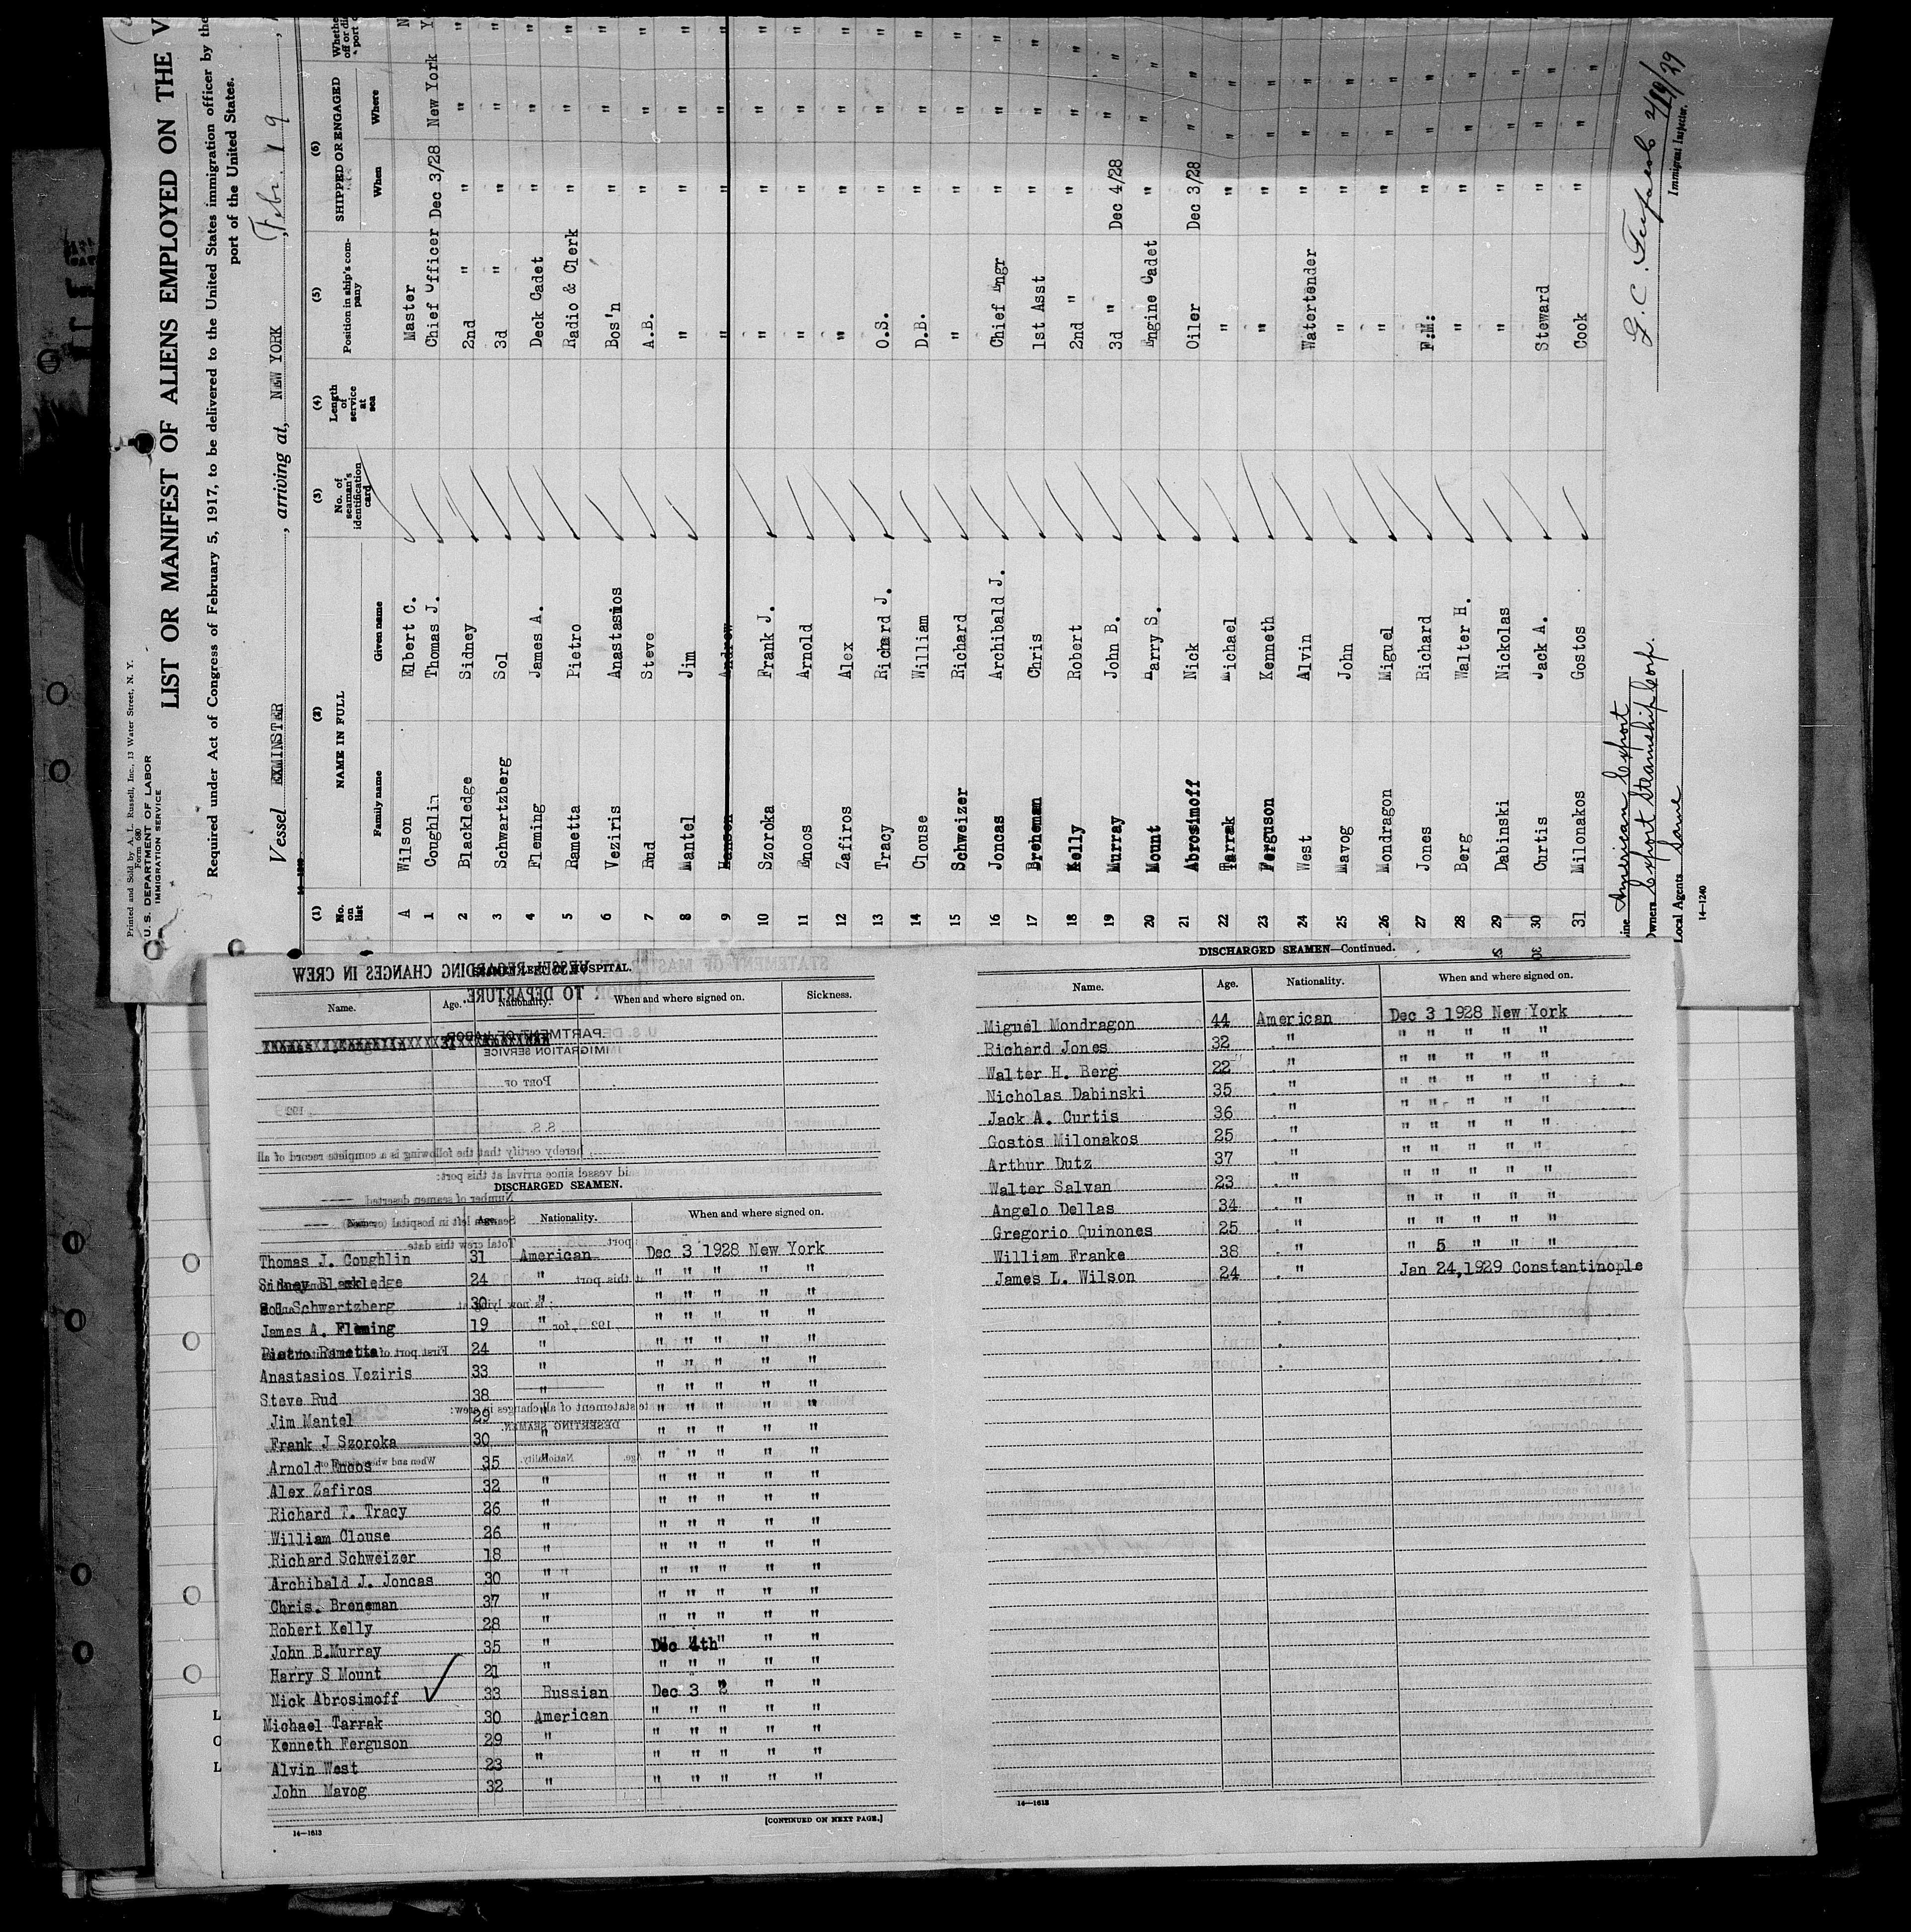 Printed and Sold by A. L. Russell, Inc., 13 Water Street, N. Y.
Form 680
U. S. DEPARTMENT OF LABOR
IMMIGRATION SERVICE
LIST OR MANIFEST OF ALIENS EMPLOYED ON THE V
Required under Act of Congress of February 5, 1917, to be delivered to the United States immigration officer by the
port of the United States.
Vessel EXMINSTER, arriving at, NEW YORK, Feb. 19,
(1) (2) (3) (4) (5) (6)
No. on list NAME IN FULL No. of seaman's identification card Length of service at sea Position in ship's company SHIPPED OR ENGAGED
Family name Given name When Where
A Wilson Elbert C. Master
1 Coughlin Thomas J. Chief Officer Dec 3/28 New York
2 Blackledge Sidney 2nd " " "
3 Schwartzberg Sol 3d " " "
4 Fleming James A. Deck Cadet " "
5 Rametta Pietro Radio & Clerk " "
6 Veziris Anastasios Bos'n " "
7 Rud Steve A.B. " "
8 Mantel Jim " " "
9 Hanson Andrew " " "
10 Szorokra Frank J. " " "
11 Enoos Arnold " " "
12 Zafiros Alex " " "
13 Tracy Richard J. O.S. " "
14 Clouse William D.B. " "
15 Schweizer Richard " " "
16 Joncas Archibald J. Chief Engr " "
17 Breneman Chris 1st Asst " "
18 Kelly Robert 2nd " " "
19 Murray John B. 3d " Dec 4/28 "
20 Mount Harry S. Engine Cadet " "
21 Abrosimoff Nick Oiler Dec 3/28 "
22 Tarrak Michael " " "
23 Ferguson Kenneth " " "
24 West Alvin Watertender " "
25 Mavog John " " "
26 Mondragon Miguel " " "
27 Jones Richard F.M. " "
28 Berg Walter H. " " "
29 Dabinski Nickolas " " "
30 Curtis Jack A. Steward " "
31 Milonakos Gostos Cook " "
Line American Export
Owners Export Steamship Corp.
Local Agents Same
Immigrant Inspector.
2/19/29
14-1240
SEAMEN LEFT IN HOSPITAL.
Name. Age. Nationality. When and where signed on. Sickness.
DISCHARGED SEAMEN.
Name. Age. Nationality. When and where signed on.
Thomas J. Coughlin 31 American Dec 3 1928 New York
Sidney Blackledge 24 " " " " " "
Sol Schwartzberg 30 " " " " " "
James A. Fleming 19 " " " " " "
Pietro Rametta 24 " " " " " "
Anastasios Veziris 33 " " " " " "
Steve Rud 38 " " " " " "
Jim Mantel 29 " " " " " "
Frank J Szoroka 30 " " " " " "
Arnold Enoos 35 " " " " " "
Alex Zafiros 32 " " " " " "
Richard T. Tracy 26 " " " " " "
William Clouse 26 " " " " " "
Richard Schweizer 18 " " " " " "
Archibald J. Joncas 30 " " " " " " "
Chris. Breneman 37 " " " " " "
Robert Kelly 28 " " " " " "
John B.Murray 35 " Dec 4th " " "
Harry S Mount 21 " " " " " "
Nick Abrosimoff 33 Russian Dec 3 " " "
Michael Tarrak 30 American " " " " "
Kenneth Ferguson 29 " " " " " "
Alvin West 23 " " " " " "
John Mavog 32 " " " " " "
14—1613
[CONTINUED ON NEXT PAGE.]
DISCHARGED SEAMEN—Continued.
Name. Age. Nationality. When and where signed on.
Miguel Mondragon 44 American Dec 3 1928 New York
Richard Jones 32 " " " " " "
Walter H. Berg 22 " " " " " "
Nicholas Dabinski 35 " " " " " "
Jack A. Curtis 36 " " " " " "
Gostos Milonakos 25 " " " " " "
Arthur Dutz 37 " " " " " "
Walter Salvan 23 " " " " " "
Angelo Dellas 34 " " " " " "
Gregorio Quinones 25 " " " " " "
William Franke 38 " " 5 " " "
James L. Wilson 24 " Jan 24,1929 Constantinople
14—1613